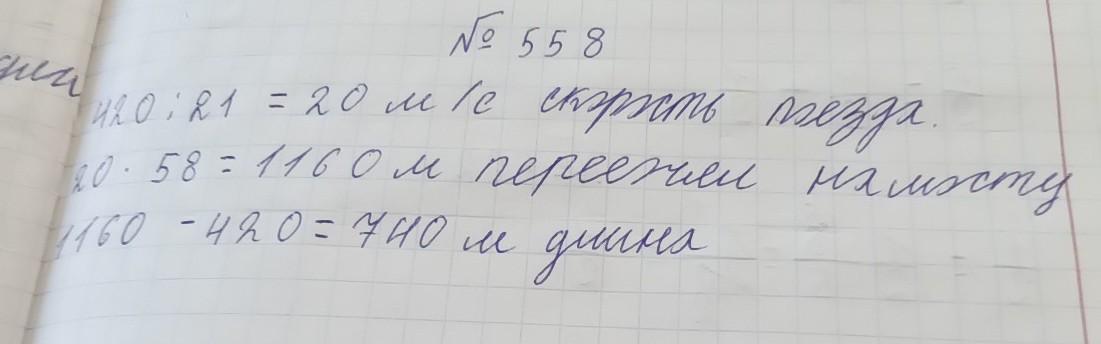 № 558
420 : 21 = 20 м/с скорость поезда.
20 · 58 = 1160 м переезжал на мосту
1160 - 420 = 740 м длина